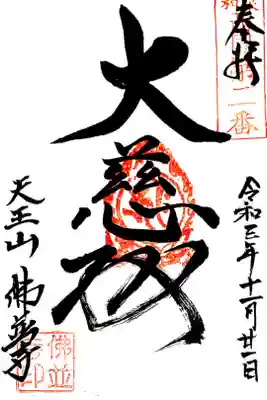 奉拝
令和三年十一月廿一日
大慈殿
天王山 佛並寺
二番
佛並寺印